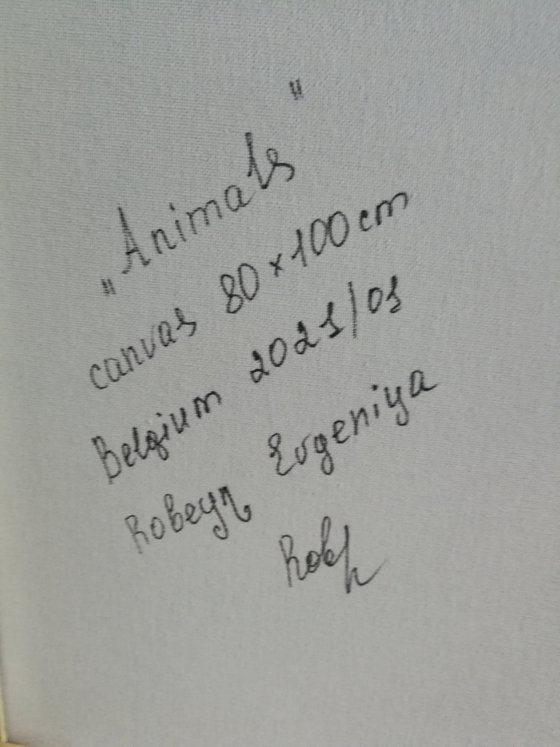 „Animals"
canvas 80×100 cm
Belgium 2021/01
Robeyr Evgeniya